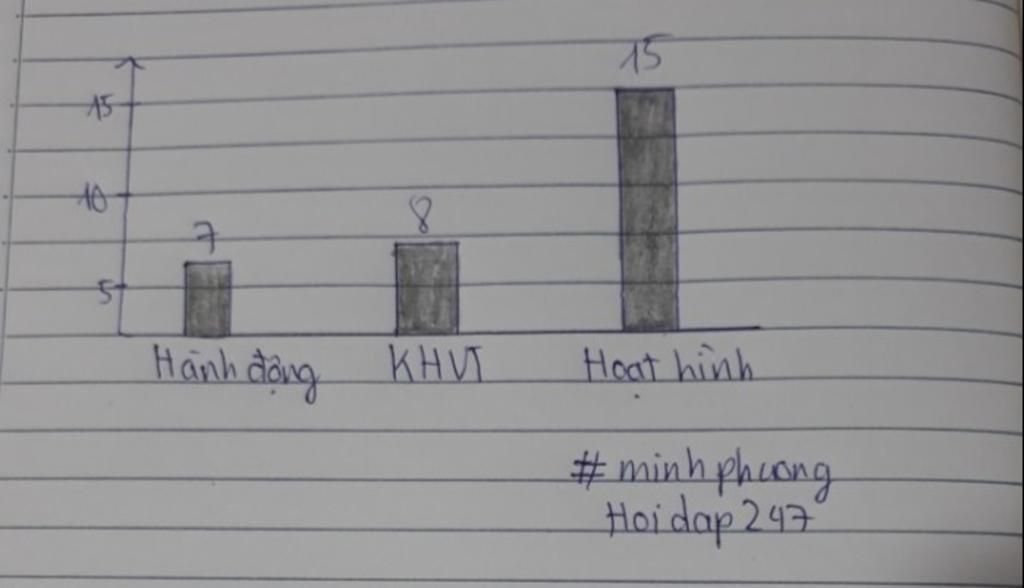 15
15
10
8
7
5
Hành động KHVT Hoạt hình
# minh phuong
Hoidap 247